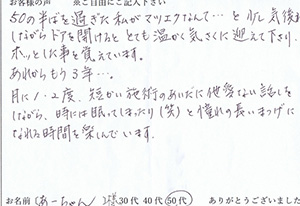 お客様の声　※ご自由にご記入下さい
50の半ばを過ぎた私がマツエクなんて…と少し気後れ
しながらドアを開けるととても温かく気さくに迎えて下さり、
ホッとした事を覚えています。
あれからもう3年…。
月に1・2度、短かい施術のあいだに他愛ない話しを
しながら、時には眠ってしまったり(笑)と憧れの長いまつげに
なれる時間を楽しんでいます。
お名前(あーちゃん)様 30代 40代 50代　ありがとうございました